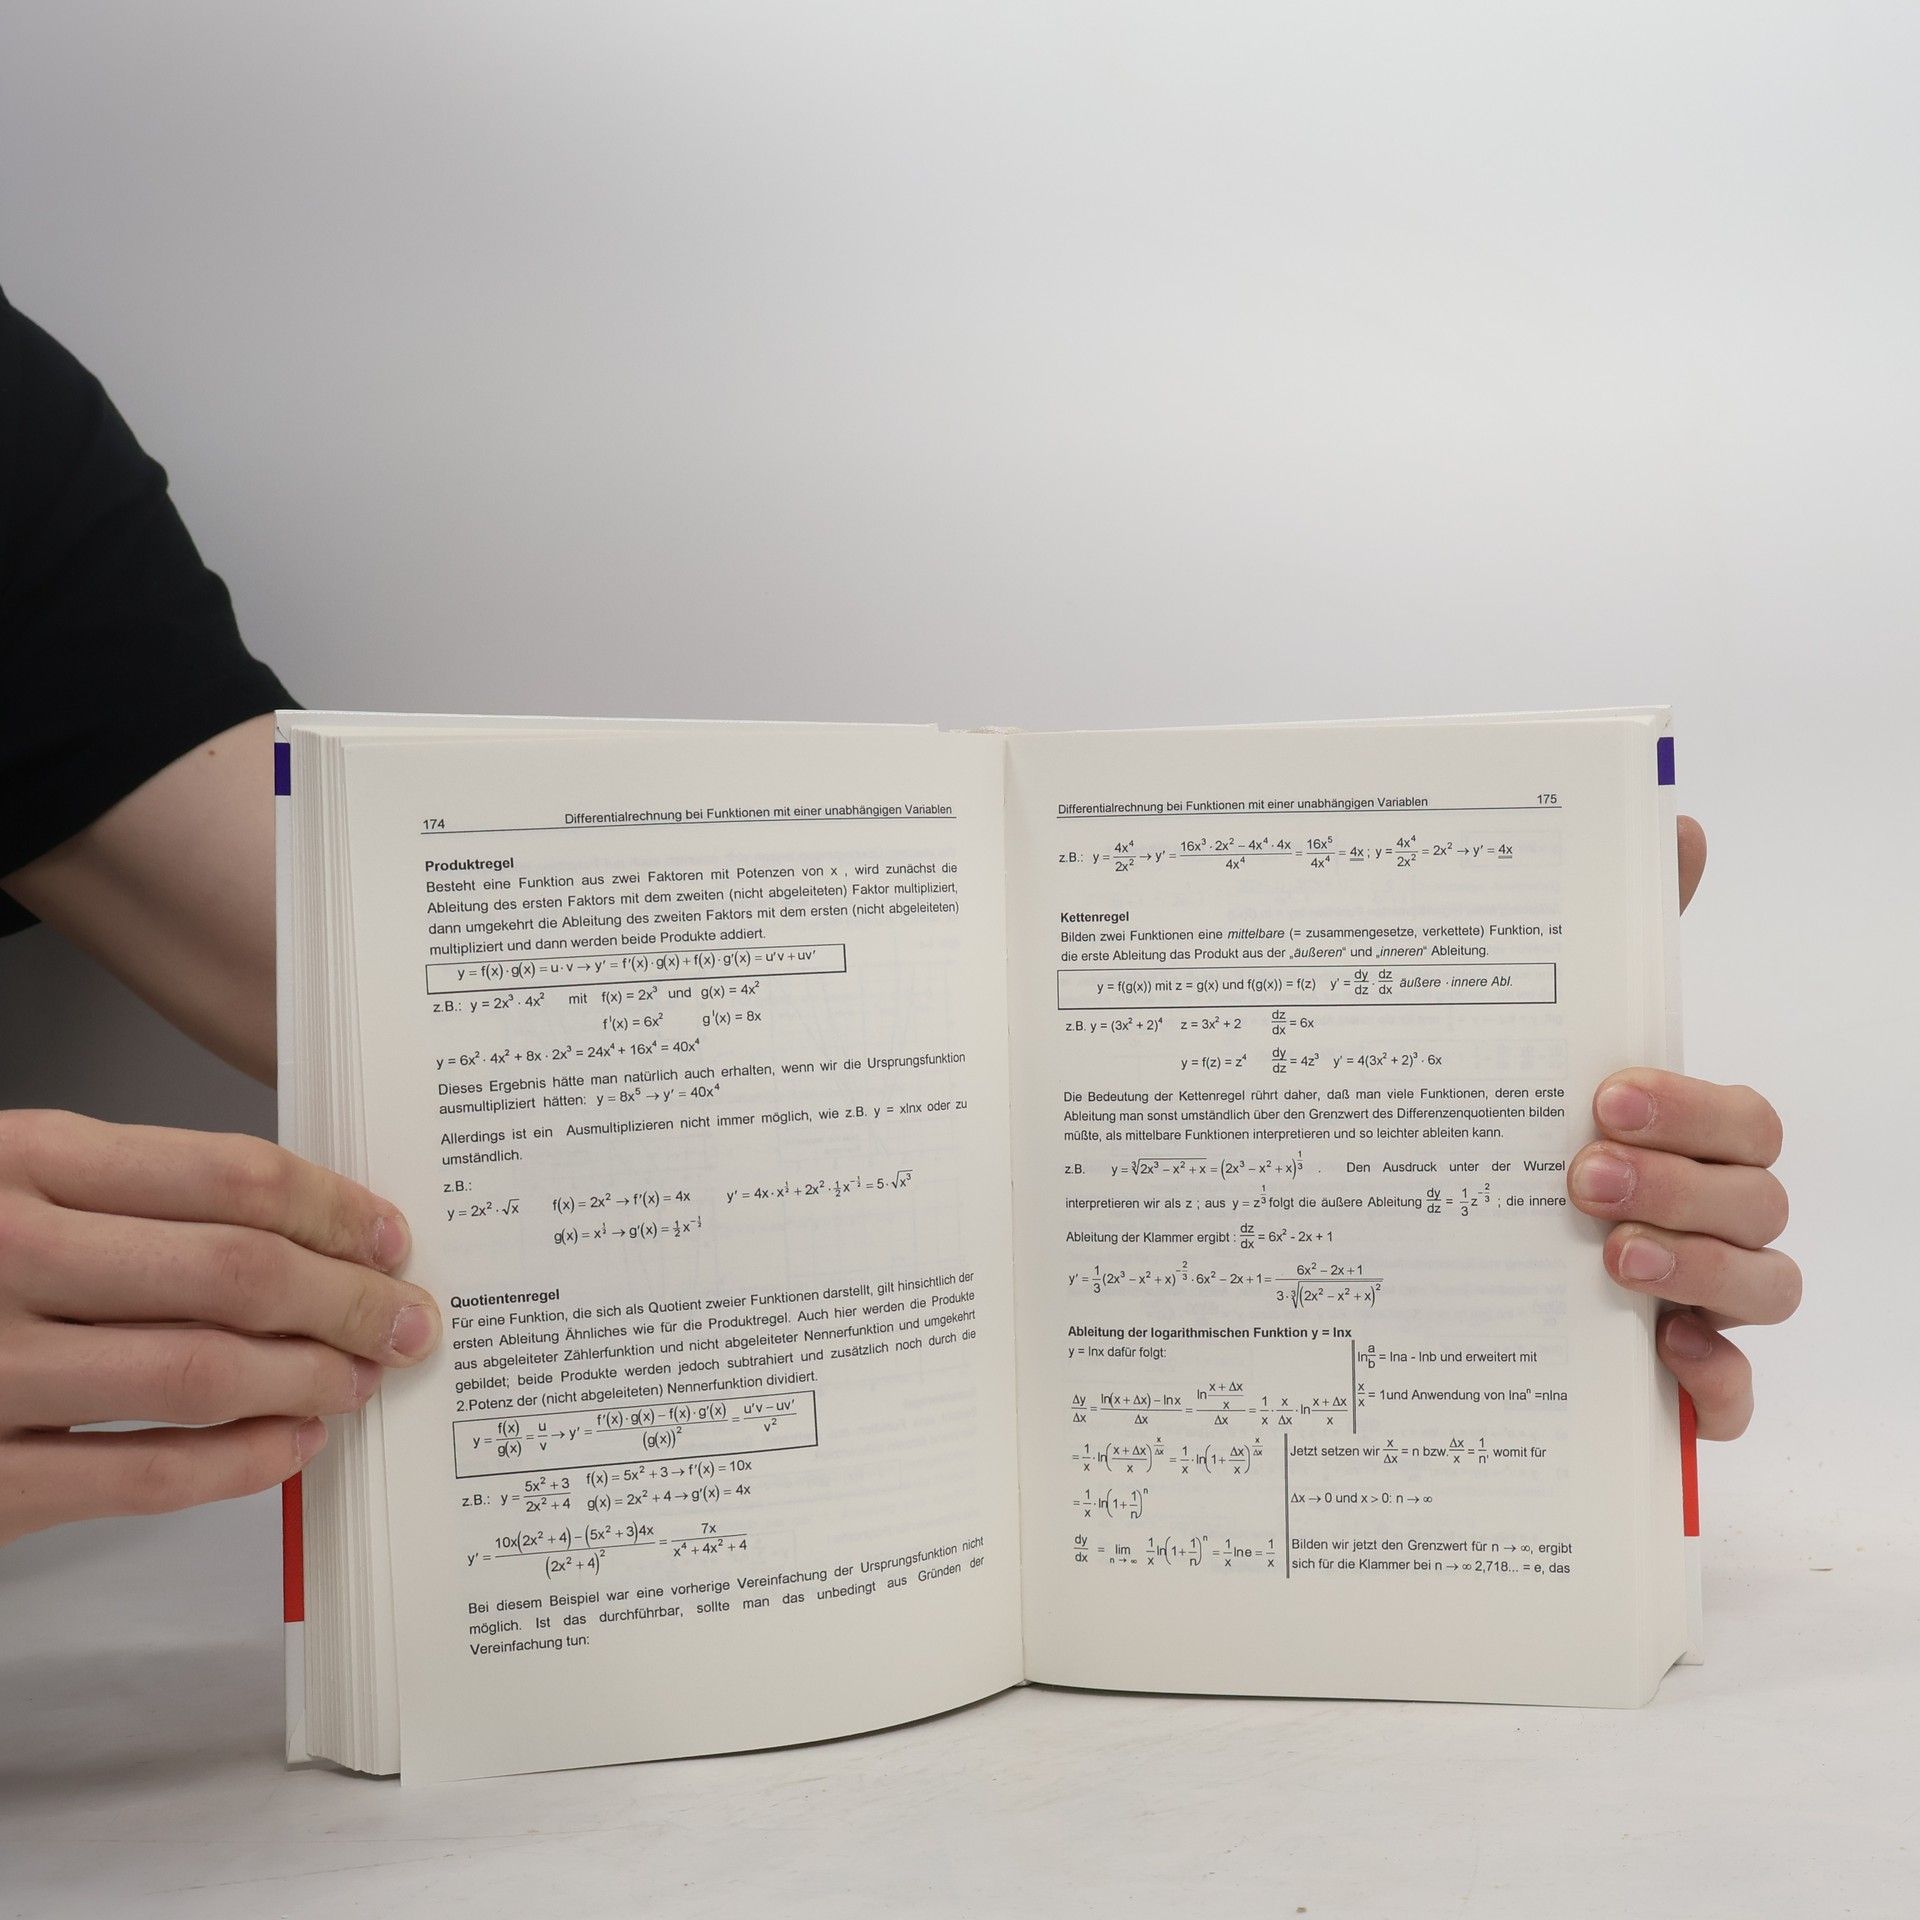 174 Differentialrechnung bei Funktionen mit einer unabhängigen Variablen
Produktregel
Besteht eine Funktion aus zwei Faktoren mit Potenzen von x , wird zunächst die
Ableitung des ersten Faktors mit dem zweiten (nicht abgeleiteten) Faktor multipliziert,
dann umgekehrt die Ableitung des zweiten Faktors mit dem ersten (nicht abgeleiteten)
multipliziert und dann werden beide Produkte addiert.
y = f(x)·g(x) = u·v → y' = f'(x)·g(x) + f(x)·g'(x) = u'v + uv'
z.B.: y = 2x³ · 4x² mit f(x) = 2x³ und g(x) = 4x²
f'(x) = 6x² g'(x) = 8x
y = 6x² · 4x² + 8x · 2x³ = 24x⁴ + 16x⁴ = 40x⁴
Dieses Ergebnis hätte man natürlich auch erhalten, wenn wir die Ursprungsfunktion
ausmultipliziert hätten: y = 8x⁵ → y' = 40x⁴
Allerdings ist ein Ausmultiplizieren nicht immer möglich, wie z.B. y = xlnx oder zu
umständlich.
z.B.:
y = 2x² · √x f(x) = 2x² → f'(x) = 4x y' = 4x · x^(1/2) + 2x² · 1/2 x^(-1/2) = 5 · √x³
g(x) = x^(1/2) → g'(x) = 1/2 x^(-1/2)
Quotientenregel
Für eine Funktion, die sich als Quotient zweier Funktionen darstellt, gilt hinsichtlich der
ersten Ableitung Ähnliches wie für die Produktregel. Auch hier werden die Produkte
aus abgeleiteter Zählerfunktion und nicht abgeleiteter Nennerfunktion und umgekehrt
gebildet; beide Produkte werden jedoch subtrahiert und zusätzlich noch durch die
2.Potenz der (nicht abgeleiteten) Nennerfunktion dividiert.
y = f(x)/g(x) = u/v → y' = (f'(x)·g(x) – f(x)·g'(x))/(g(x))² = (u'v – uv')/v²
z.B.: y = (5x² + 3)/(2x² + 4) f(x) = 5x² + 3 → f'(x) = 10x
g(x) = 2x² + 4 → g'(x) = 4x
y' = (10x(2x² + 4) – (5x² + 3)4x)/(2x² + 4)² = 7x/(x⁴ + 4x² + 4)
Bei diesem Beispiel war eine vorherige Vereinfachung der Ursprungsfunktion nicht
möglich. Ist das durchführbar, sollte man das unbedingt aus Gründen der
Vereinfachung tun:
Differentialrechnung bei Funktionen mit einer unabhängigen Variablen 175
z.B.: y = 4x⁴/2x² → y' = (16x³ · 2x² – 4x⁴ · 4x)/4x⁴ = 16x⁵/4x⁴ = 4x ; y = 4x⁴/2x² = 2x² → y' = 4x
Kettenregel
Bilden zwei Funktionen eine mittelbare (= zusammengesetze, verkettete) Funktion, ist
die erste Ableitung das Produkt aus der „äußeren“ und „inneren“ Ableitung.
y = f(g(x)) mit z = g(x) und f(g(x)) = f(z) y' = dy/dz · dz/dx äußere · innere Abl.
z.B. y = (3x² + 2)⁴ z = 3x² + 2 dz/dx = 6x
y = f(z) = z⁴ dy/dz = 4z³ y' = 4(3x² + 2)³ · 6x
Die Bedeutung der Kettenregel rührt daher, daß man viele Funktionen, deren erste
Ableitung man sonst umständlich über den Grenzwert des Differenzenquotienten bilden
müßte, als mittelbare Funktionen interpretieren und so leichter ableiten kann.
z.B. y = ∛(2x³ – x² + x) = (2x³ – x² + x)^(1/3) . Den Ausdruck unter der Wurzel
interpretieren wir als z ; aus y = z^(1/3) folgt die äußere Ableitung dy/dz = 1/3 z^(-2/3) ; die innere
Ableitung der Klammer ergibt : dz/dx = 6x² - 2x + 1
y' = 1/3 (2x³ – x² + x)^(-2/3) · 6x² – 2x + 1 = (6x² – 2x + 1)/(3 · ∛(2x² – x² + x)²)
Ableitung der logarithmischen Funktion y = lnx
y = lnx dafür folgt: ln a/b = lna - lnb und erweitert mit
Δy/Δx = (ln(x + Δx) – lnx)/Δx = (ln (x + Δx)/x)/Δx = 1/x · x/Δx · ln (x + Δx)/x x/x = 1und Anwendung von lnaⁿ =nlna
= 1/x · ln((x + Δx)/x)^(x/Δx) = 1/x · ln(1 + Δx/x)^(x/Δx) Jetzt setzen wir x/Δx = n bzw. Δx/x = 1/n, womit für
= 1/x · ln(1 + 1/n)ⁿ Δx → 0 und x > 0: n → ∞
dy/dx = lim n→∞ 1/x ln(1 + 1/n)ⁿ = 1/x lne = 1/x Bilden wir jetzt den Grenzwert für n → ∞, ergibt
sich für die Klammer bei n → ∞ 2,718... = e, das